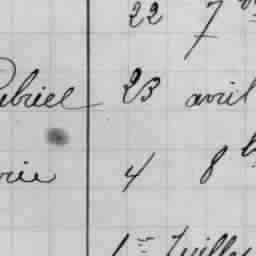 22 7
briel 23 avril
rie 4 8b
1er Juille